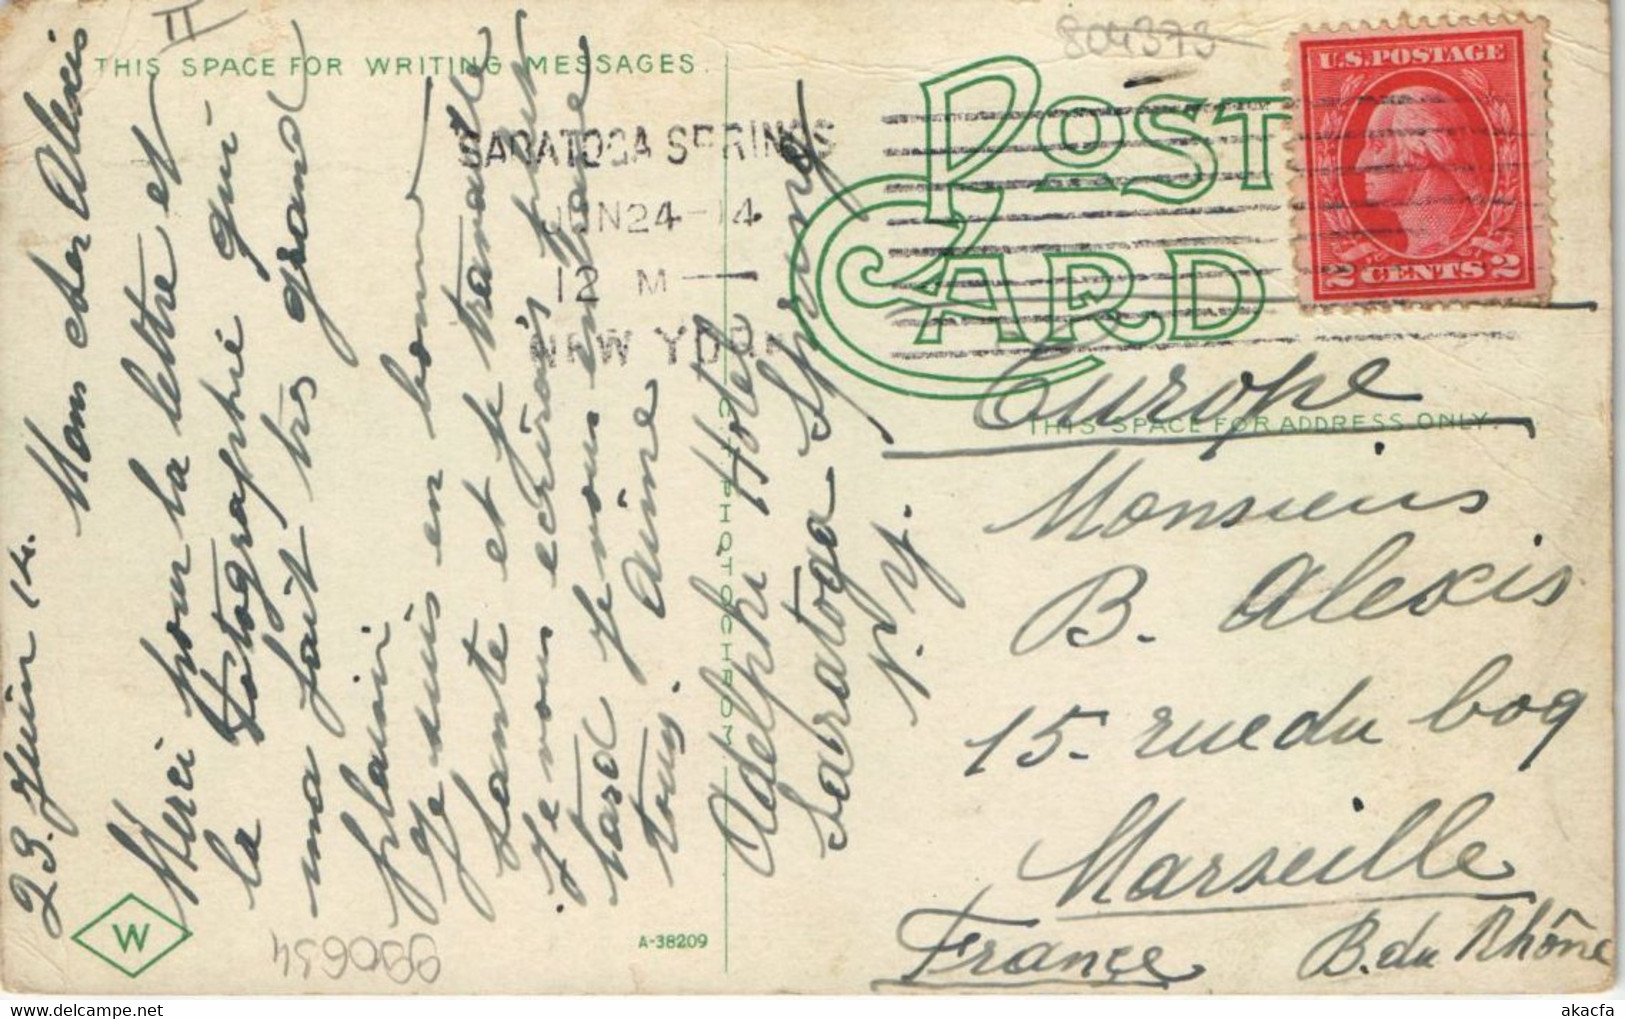 THIS SPACE FOR WRITING MESSAGES.
23. Juin 14. Mon cher Alexis
Merci pour la lettre et
la fotographie qui
ma fait très grand
plaisir
Je suis en bonne
sante et je travaille
Je vous ecrirais plus
tard je vous embrasse
tous. Aimé
Adelphi Hotel
Saratoga Springs
N. Y.
C.T. PHOTOCHROM
W
990634
A-38209
804373
POST CARD
SARATOGA SPRINGS
JUN 24-14
12 M
NEW YORK
U.S. POSTAGE
2 CENTS 2
THIS SPACE FOR ADDRESS ONLY.
Europe
Monsieur
B. Alexis
15. rue du bog
Marseille
France B. du Rhône
akacfa